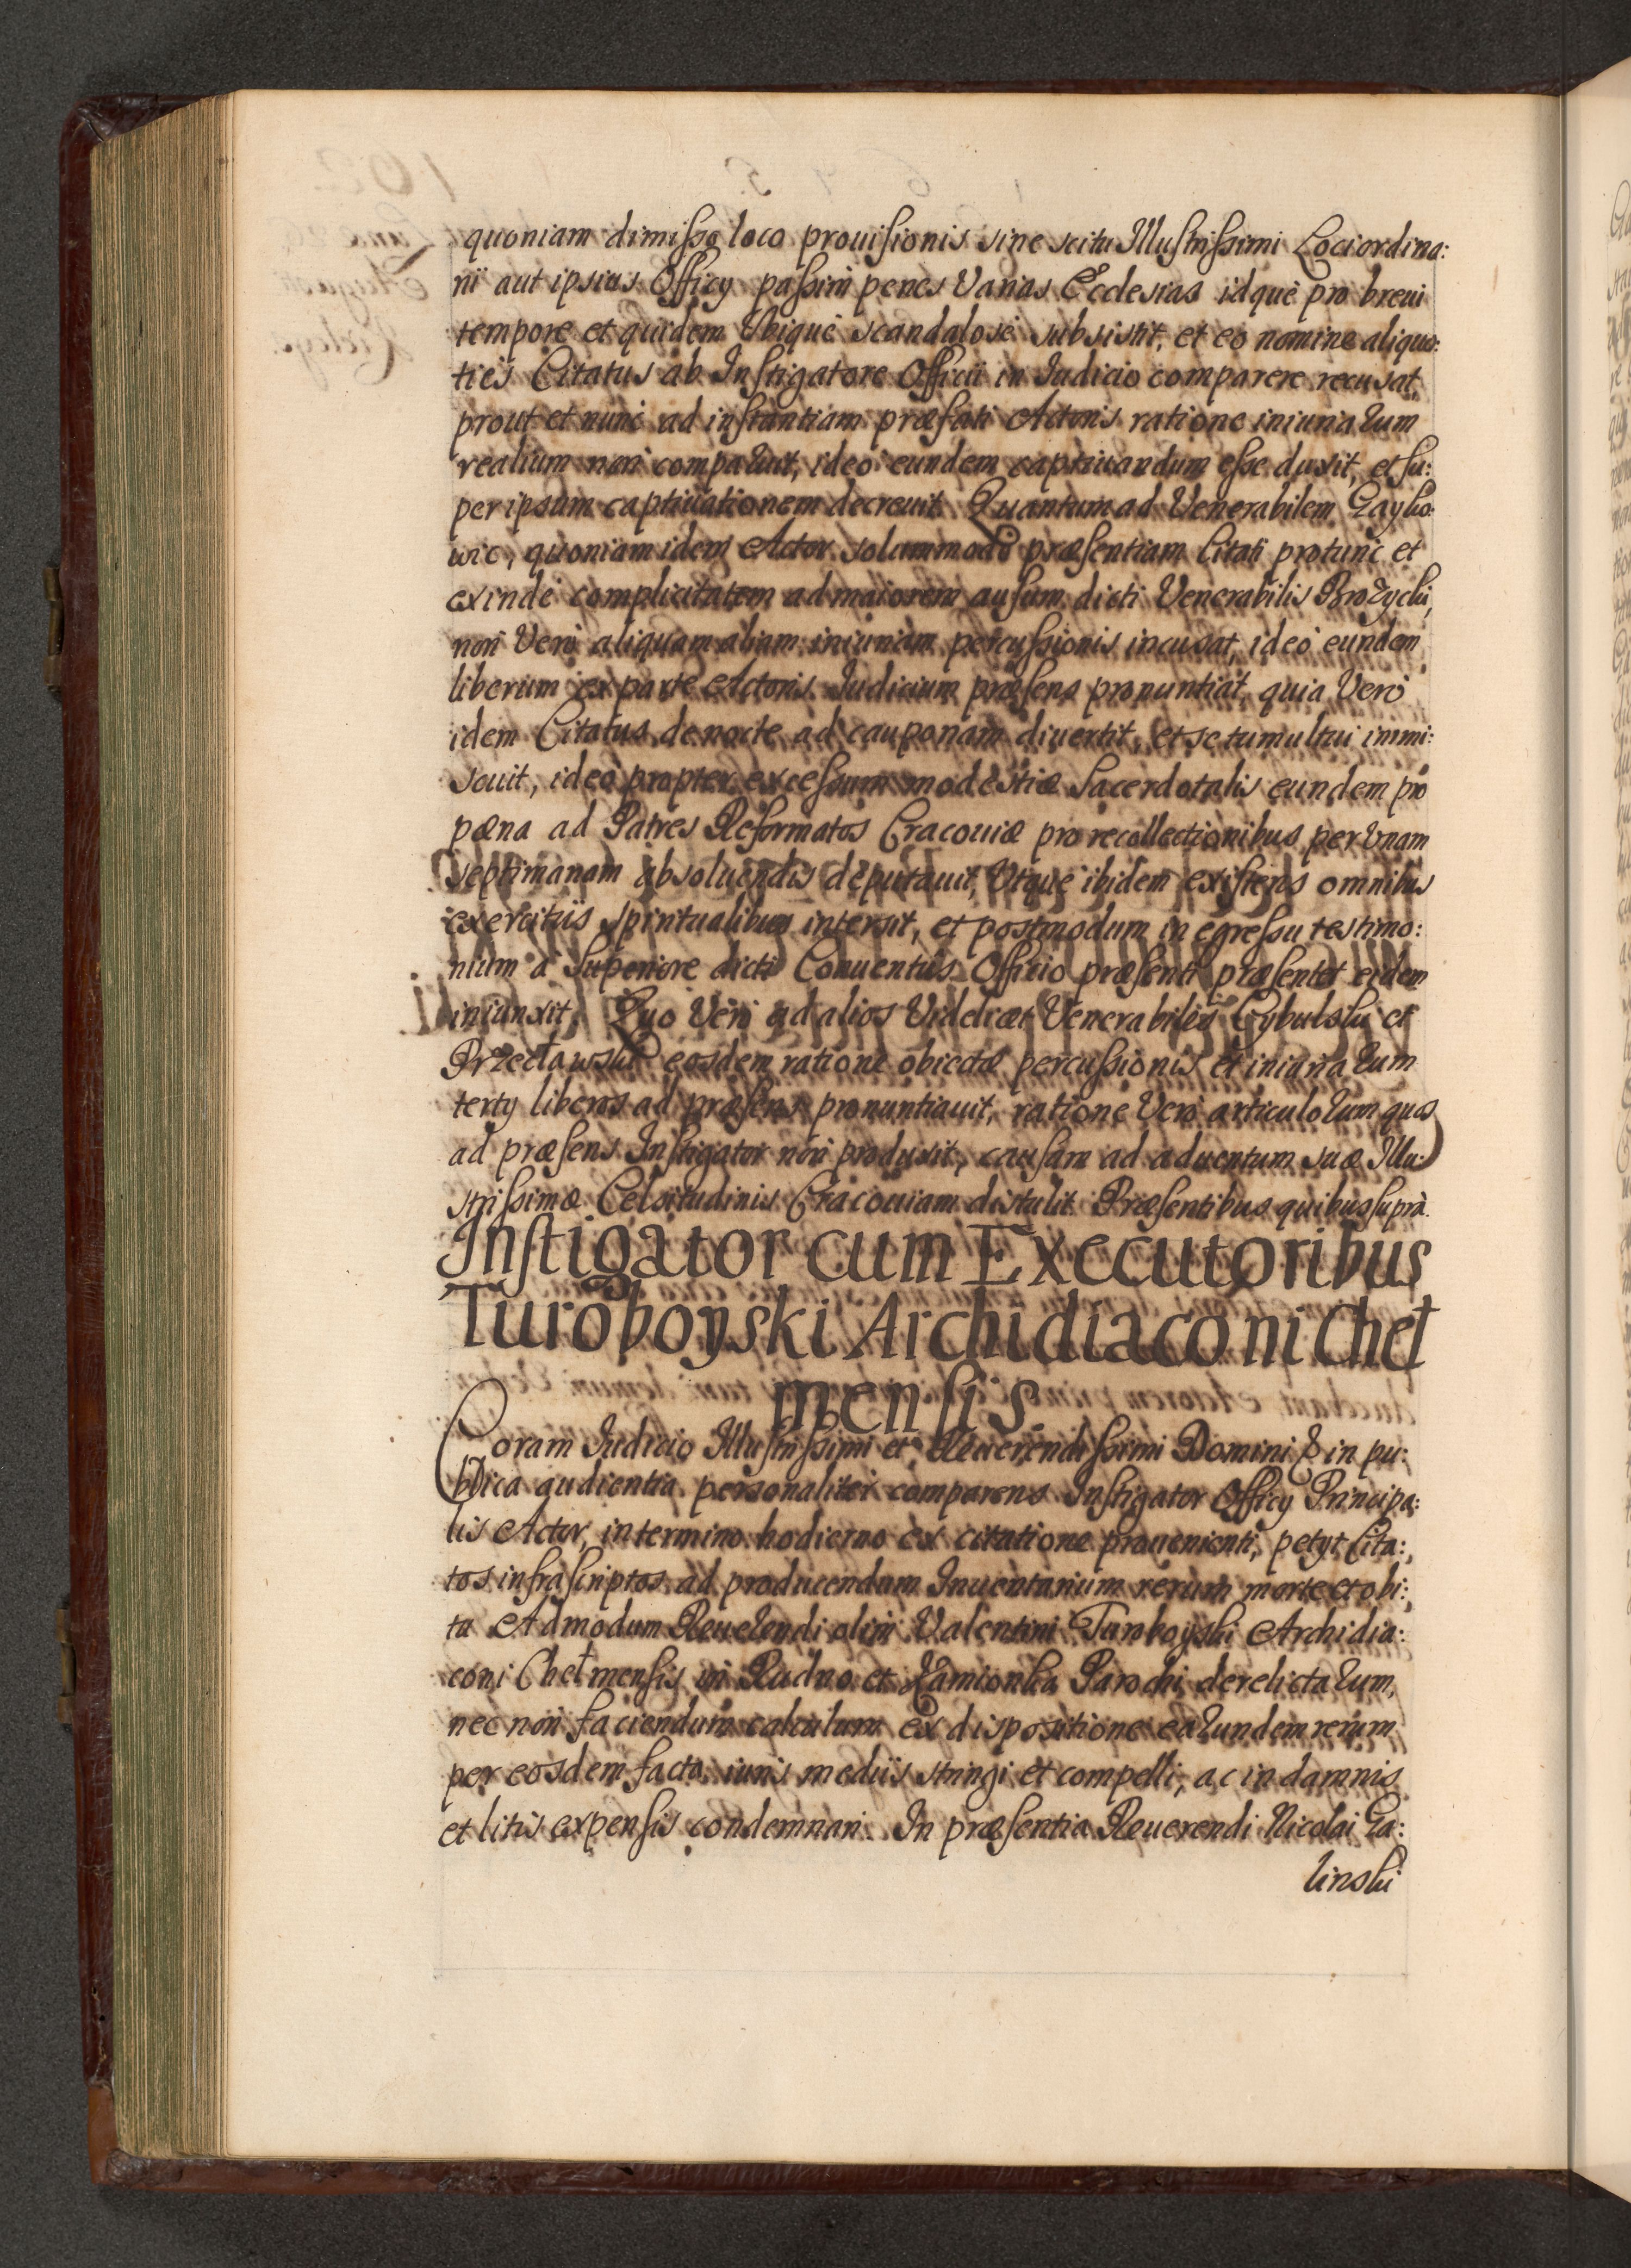 quoniam dimisso loco prouisionis sine scitu Illustrissimi Lociordina:
rii aut ipsius Officy passim penes Varias Ecclesias idque pro breui
tempore et quidem Vbique scandalose subsistit, et eo nomine aliquo:
ties Citatus ab Instigatore Officii in Iudicio comparere recusat,
prout et nunc ad instantiam præfati Actoris ratione iniuriarum
realium non comparuit, ideo eundem captiuandum esse duxit, et su:
per ipsum captiuationem decreuit. Quantum ad Venerabilem Gaylio:
wic, quoniam idem Actor solummodo præsentiam Citati protunc et
exinde complicitatem ad maiorem ausum dicti Venerabilis Brozycki,
non Vero aliquam aliam iniuriam percussionis incusat, ideo eundem
liberum ex parte Actoris Iudicium præsens pronuntiat, quia Vero
idem Citatus de nocte ad cauponam diuertit, et se tumultui immi:
scuit, ideo propter excessum modestiæ Sacerdotalis eundem pro
pæna ad Patres Reformatos Cracouiæ pro recollectionibus per Vnam
septimanam absoluendis deputauit, Vtque ibidem existens omnibus
exercitiis spiritualibus intersit, et postmodum in egressu testimo:
nium a Superiore dicti Conuentus Officio præsenti præsentet eidem
iniunxit, Quo Vero ad alios Videlicet Venerabiles Cybulski et
Przecławski eosdem ratione obiectæ percussionis et iniuriarum
terty liberos ad præsens pronuntiauit, ratione Vero articulorum quos
ad præsens Instigator non produxit, causam ad aduentum suæ Illu:
strissimæ Celsitudinis Cracouiam distulit. Præsentibus quibus supra.
Instigator cum Executoribus
Turoboyski Archidiaconi Cheł
mensis
Coram Iudicio Illustrissimi et Reuerendissimi Domini & in pu:
blica audientia personaliter comparens Instigator Officy Principa:
lis Actor, in termino hodierno ex citatione prouenienti, petyt Cita:
tos infrascriptos ad producendum Inuentarium rerum morte et obi:
tu Admodum Reuerendi olim Valentini Turoboyski Archidia:
coni Chełmensis in Rudno et Kamionka Parochi derelictarum,
nec non faciendum calculum ex dispositione earundem rerum
per eosdem facta iuris mediis stringi et compelli, ac in damnis
et litis expensis condemnari. In præsentia Reuerendi Nicolai Ga:
linski